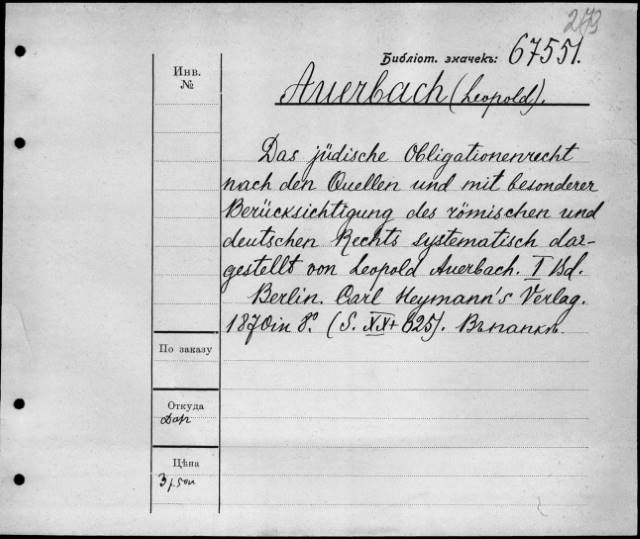 273
Библіот. значекъ: 67551.
Инв. №
Auerbach (Leopold).
Das jüdische Obligationenrecht
nach den Quellen und mit besonderer
Berücksichtigung des römischen und
deutschen Rechts systematisch dar-
gestellt von Leopold Auerbach. I Bd.
Berlin. Carl Heymann's Verlag.
1870 in 8.° (S. XX + 625). Въ папкѣ.
По заказу
Откуда
Дар
Цѣна
3 р. 50 к